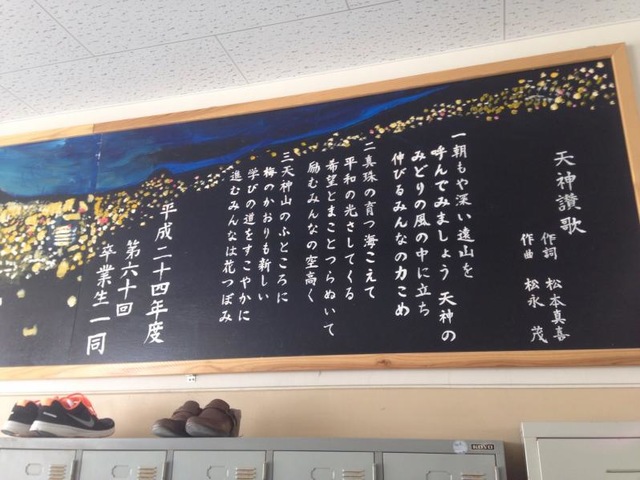 天神讃歌
作詞 松本真喜
作曲 松永 茂
一朝もや深い遠山を
呼んでみましょう 天神の
みどりの風の中に立ち
伸びるみんなの力こめ
二真珠の育つ海こえて
平和の光さしてくる
希望とまことつらぬいて
励むみんなの空高く
三天神山のふところに
梅のかおりも新しい
学びの道をすこやかに
進むみんなは花つぼみ
平成二十四年度
第六十回
卒業生一同
KOYO